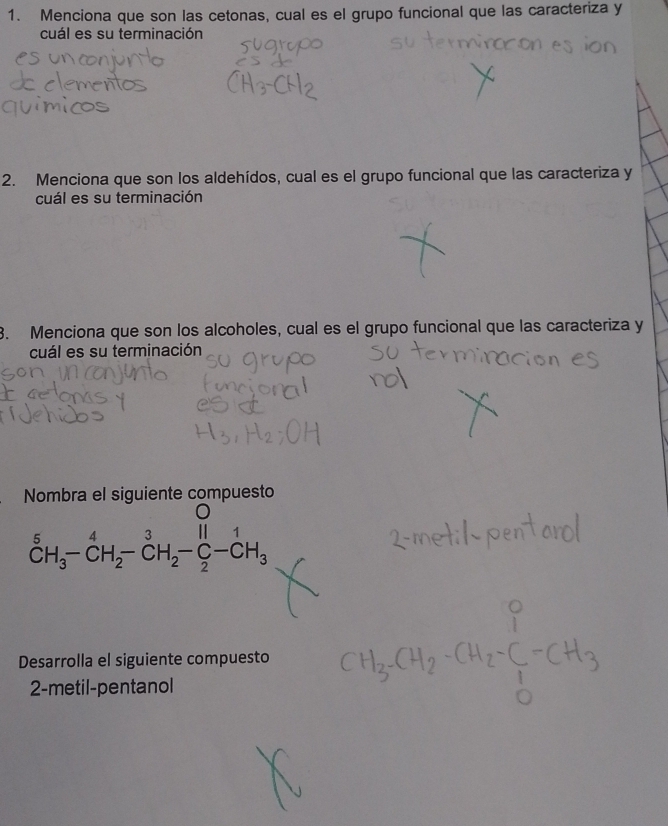 1. Menciona que son las cetonas, cual es el grupo funcional que las caracteriza y
cuál es su terminación
es un conjunto
de elementos
quimicos
su grupo
es de
CH3-CH2
su terminacon es ion
X
2. Menciona que son los aldehídos, cual es el grupo funcional que las caracteriza y
cuál es su terminación
X
3. Menciona que son los alcoholes, cual es el grupo funcional que las caracteriza y
cuál es su terminación
son un conjunto
cetonas y
su grupo
funcional
es
H3, H2; OH
su terminacion es
nol
X
Nombra el siguiente compuesto
O
5 4 3 || 1
CH3-CH2-CH2-C-CH3
2
2-metil-pentanol
X
Desarrolla el siguiente compuesto
2-metil-pentanol
O
CH3-CH2-CH2-C-CH3
O
X